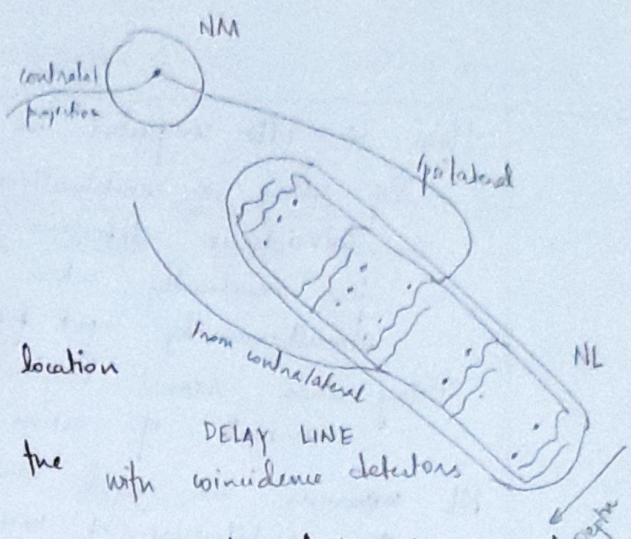 NM
contralat
projection
Ipsilateral
from contralateral
NL
location
DELAY LINE
the
with coincidence detectors
Depth